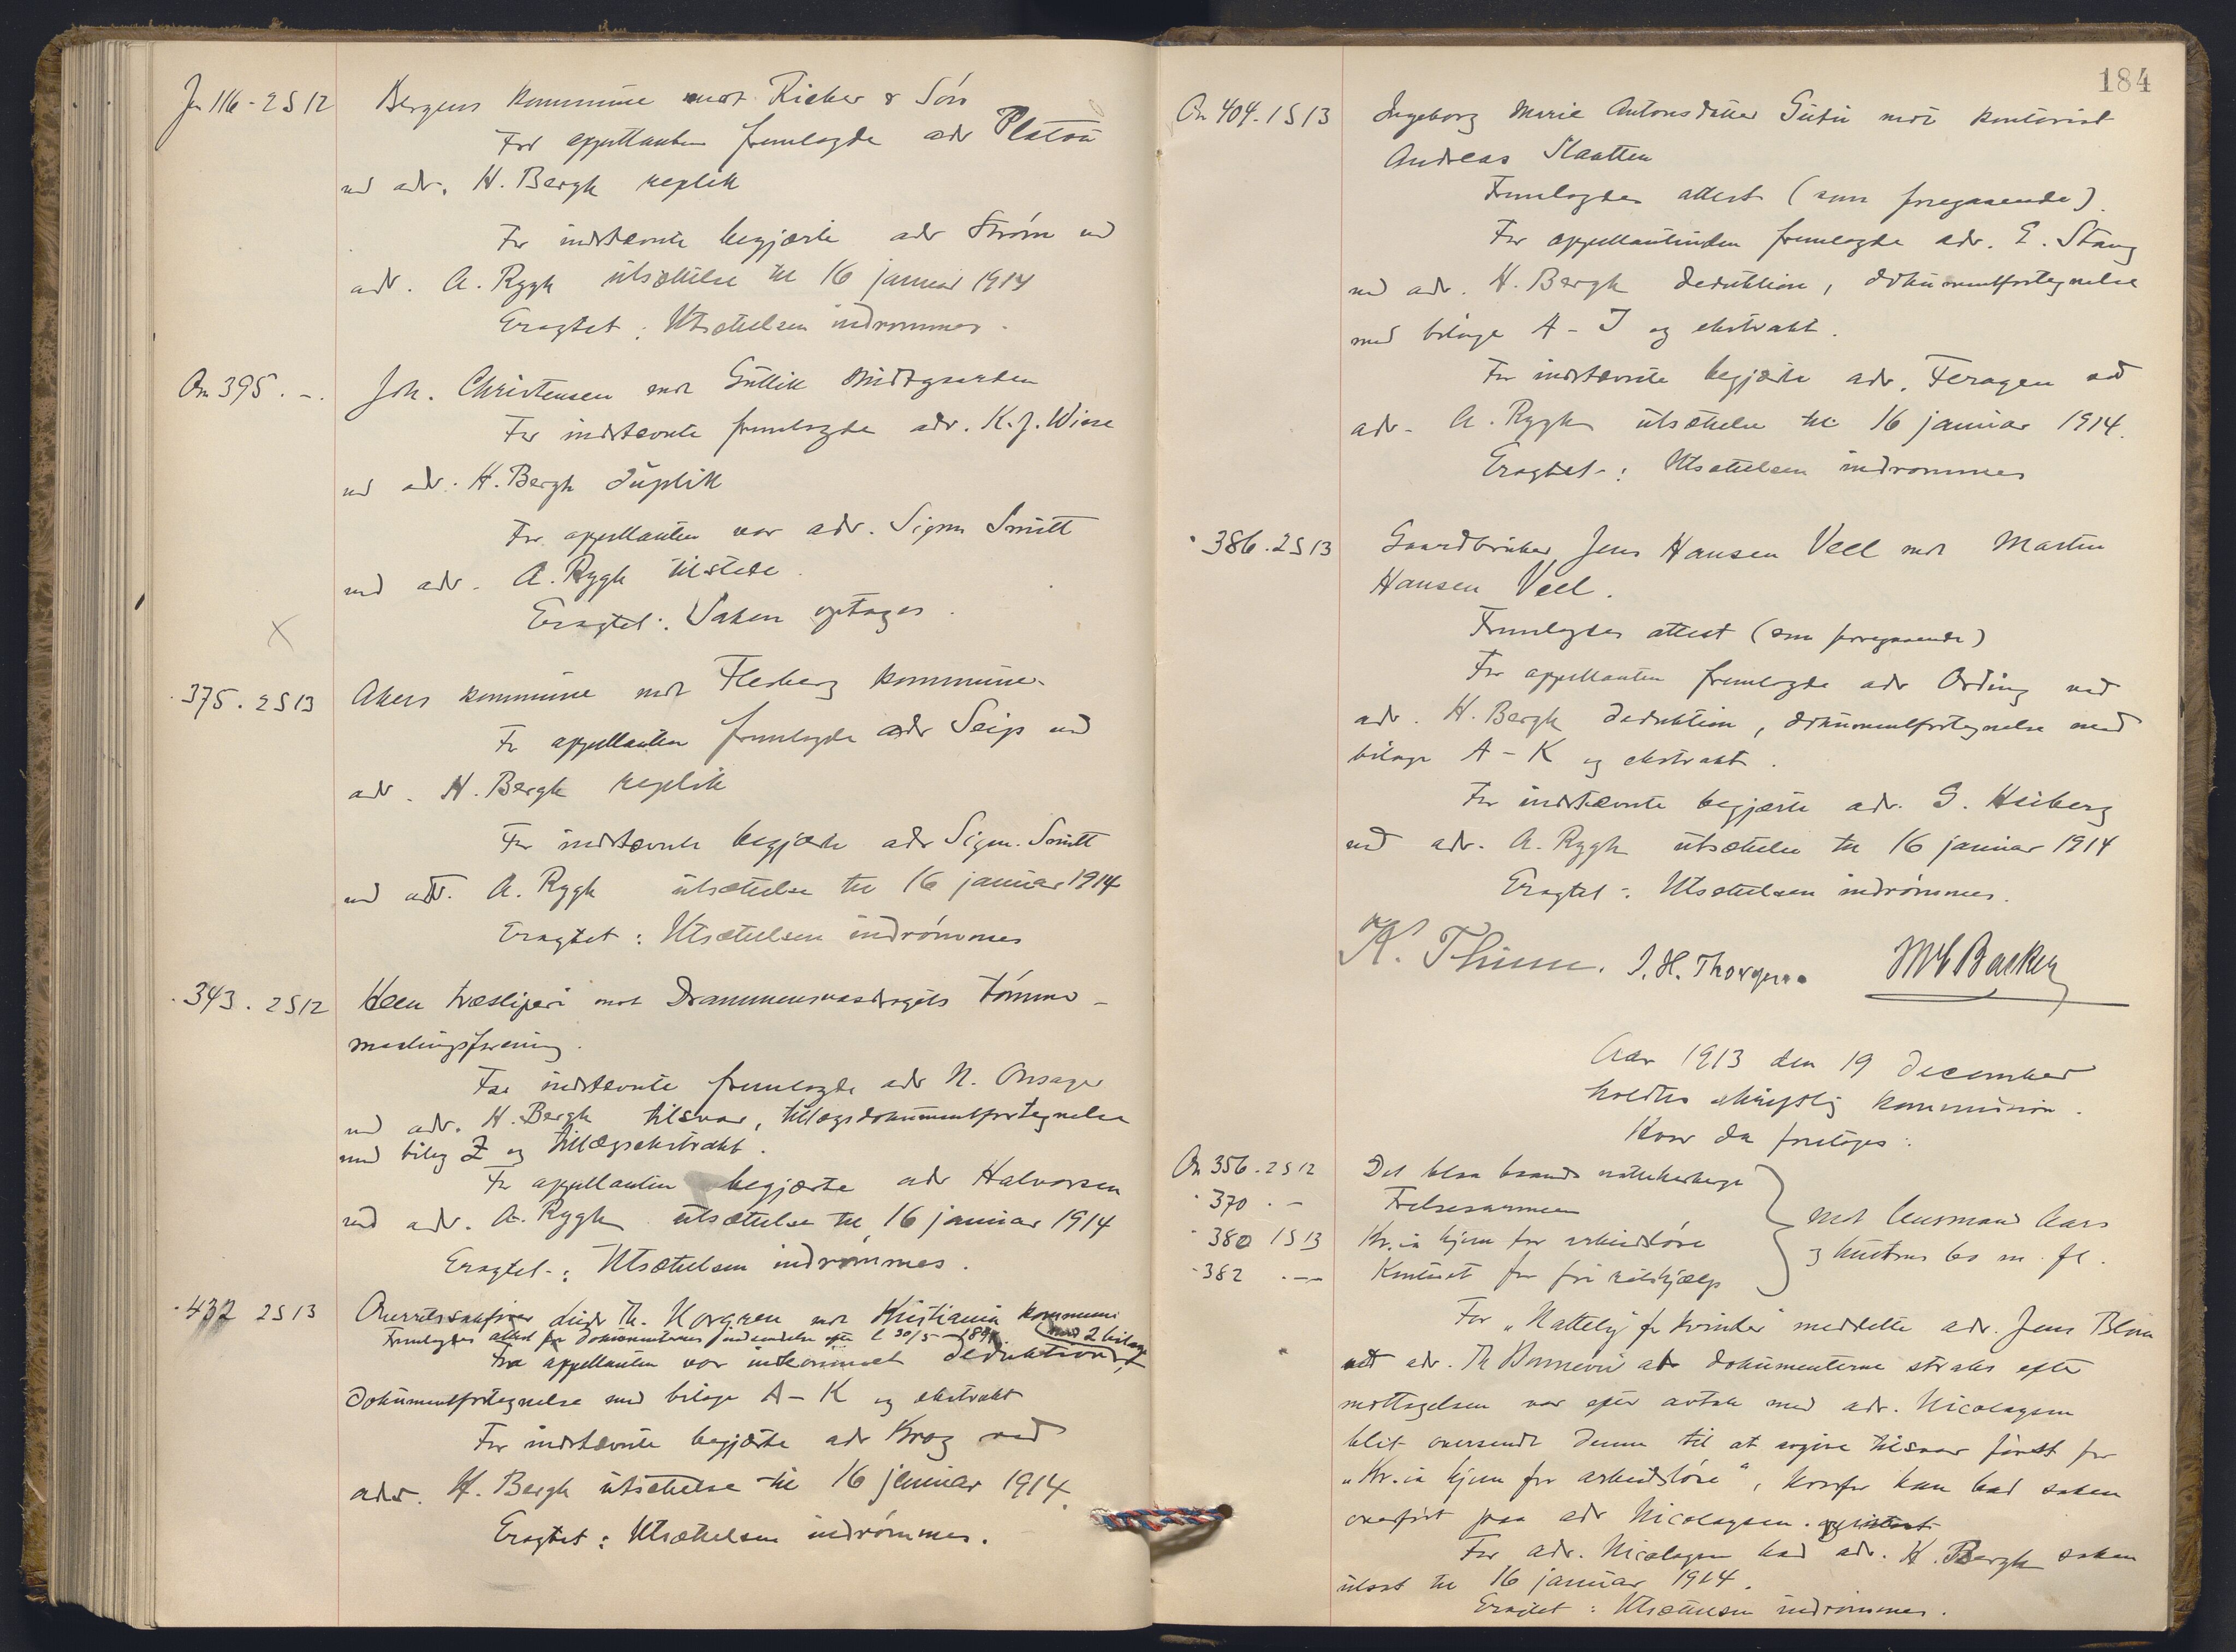 Jn 116 - 2 S 12 Bergens kommune mot Rieber & Sön
For appellanten fremlagde adv Platou
ved adv. H. Bergh replik
For indstævnte begjærte adv Strøm ved
adv. A. Rygh utsættelse til 16 januar 1914
Eragtet: Utsættelsen indrømmes.
On 395. -. Joh. Christensen mot Gullik Midtgaarden
For indstævnte fremlagde adv. K. J. Wiese
ved adv. H. Bergh duplik
For appellanten var adv. Sigm Smitt
ved adv. A. Rygh tilstede.
Eragtet: Saken optages.
375. 2 S 13 Akers kommune mot Flesberg kommune.
For appellanten fremlagde adv Seip ved
adv. H. Bergh replik
For indstævnte begjærte adv Sigm. Smitt
ved adv. A. Rygh utsættelse til 16 januar 1914
Eragtet: Utsættelsen indrømmes
343. 2 S 12 Heen træsliperi mot Drammensvasdragets tømmer-
maalingsforening.
For indstævnte fremlagde adv N. Onsager
ved adv. H. Bergh tilsvar, tillægsdokumentfortegnelse
med bilag Z og tillægsekstrakt.
For appellanten begjærte adv Halvorsen
ved adv. A. Rygh utsættelse til 16 januar 1914
Eragtet: Utsættelsen indrømmes.
432 2 S 13 Overretssakfører Th. Norgren mot Kristiania kommune
Fremlagdes attest for dokumenternes indsendelse efter l 30/5 - 1891. med 2 bilage
For appellanten var indkommet deduktion,
dokumentfortegnelse med bilage A - K og ekstrakt
For indstævnte begjærte adv Krag ved
adv. H. Bergh utsættelse til 16 januar 1914.
Eragtet: Utsættelsen indrømmes.
184
On 404. 1 S 13 Ingeborg Marie Antonsdatter mot kontorist
Andreas Slaatten
Fremlagdes attest (som foregaaende).
For appellantinden fremlagde adv. E. Stang
ved adv. H. Bergh deduktion, dokumentfortegnelse
med bilage A - J og ekstrakt.
For indstævnte begjærte adv. Feragen ved
adv. A. Rygh utsættelse til 16 januar 1914.
Eragtet: Utsættelsen indrømmes
386. 2 S 13 Gaardbruker Jens Hansen Veel mot Martin
Hansen Veel.
Fremlagdes attest (som foregaaende)
For appellanten fremlagde adv Ording ved
adv. H. Bergh deduktion, dokumentfortegnelse med
bilage A - K og ekstrakt.
For indstævnte begjærte adv. G. Heiberg
ved adv. A. Rygh utsættelse til 16 januar 1914
Eragtet: Utsættelsen indrømmes.
K. J. H.
Aar 1913 den 19 december
holdtes skriftlig kommission.
Hvor da foretoges:
On 356. 2 S 12 Det blaa baands natteherberge
370. - Frelsesarmeen
380 1 S 13 Kr.ia hjem for arbeidsløse
382. - Kontoret for fri retshjælp
mot lensmand Aars
og hustrus bo m. fl.
For "Nattely for kvinder" meddelte adv. Jens Blom
ved adv. Th Bonnevie at dokumenterne straks efter
mottagelsen var efter avtale med adv. Nicolaysen
blit oversendt denne til at avgive tilsvar først for
"Kr.ia hjem for arbeidsløse", hvorfor han bad saken
overført paa adv Nicolaysen.
For adv. Nicolaysen bad adv. H. Bergh saken
utsat til 16 januar 1914.
Eragtet: Utsættelsen indrømmes.